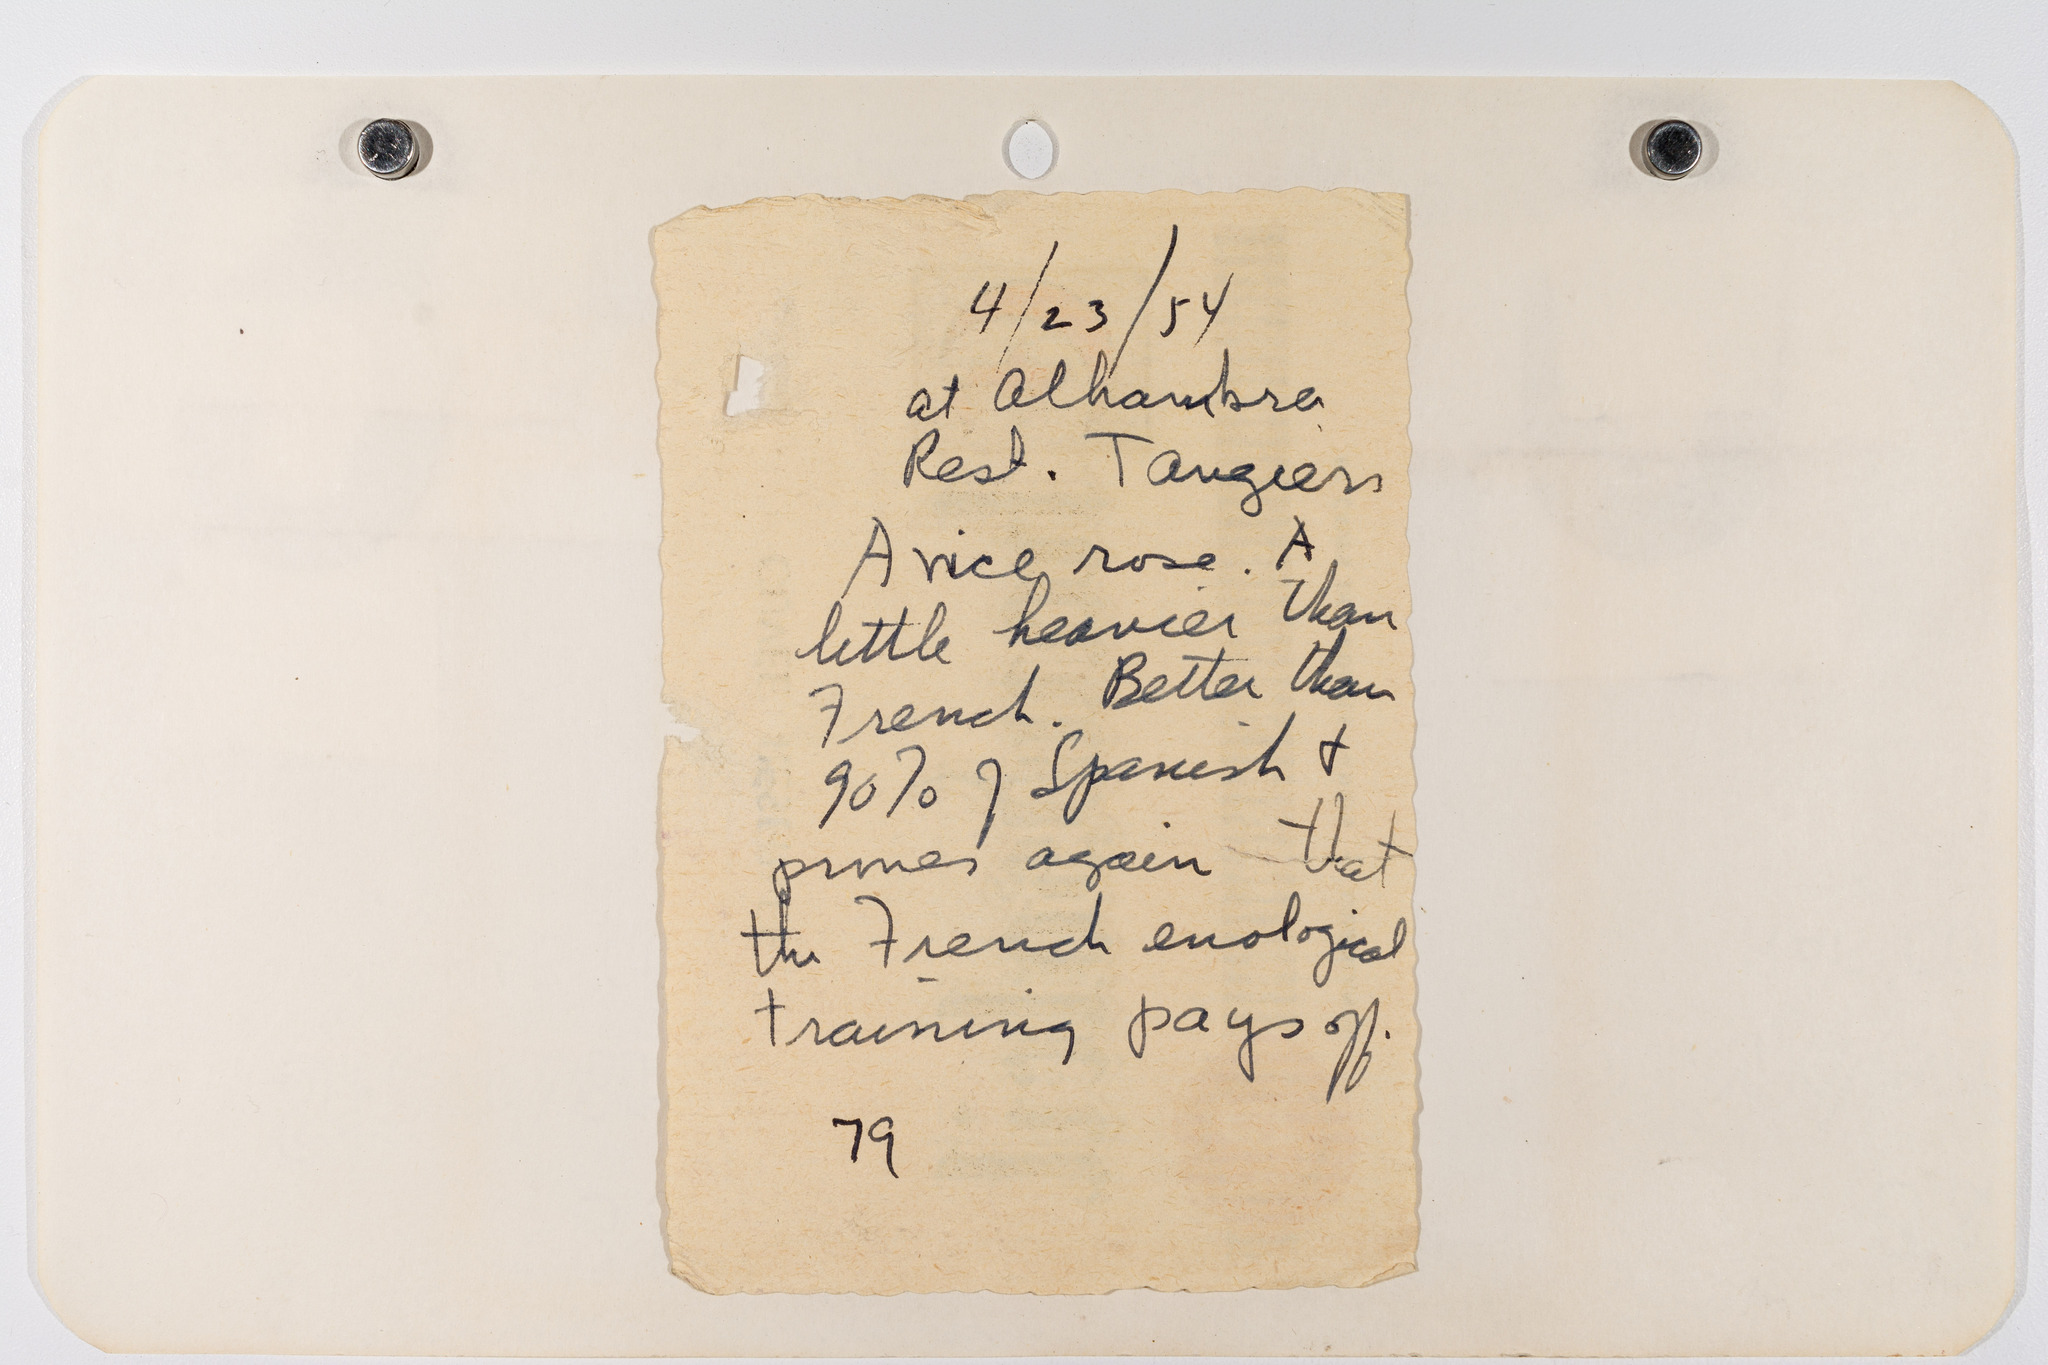 4/23/54
at Alhambra
Rest. Tangiers
A nice rose. A
little heavier than
French. Better than
90% of Spanish +
proves again that
the French enological
training pays off.
79